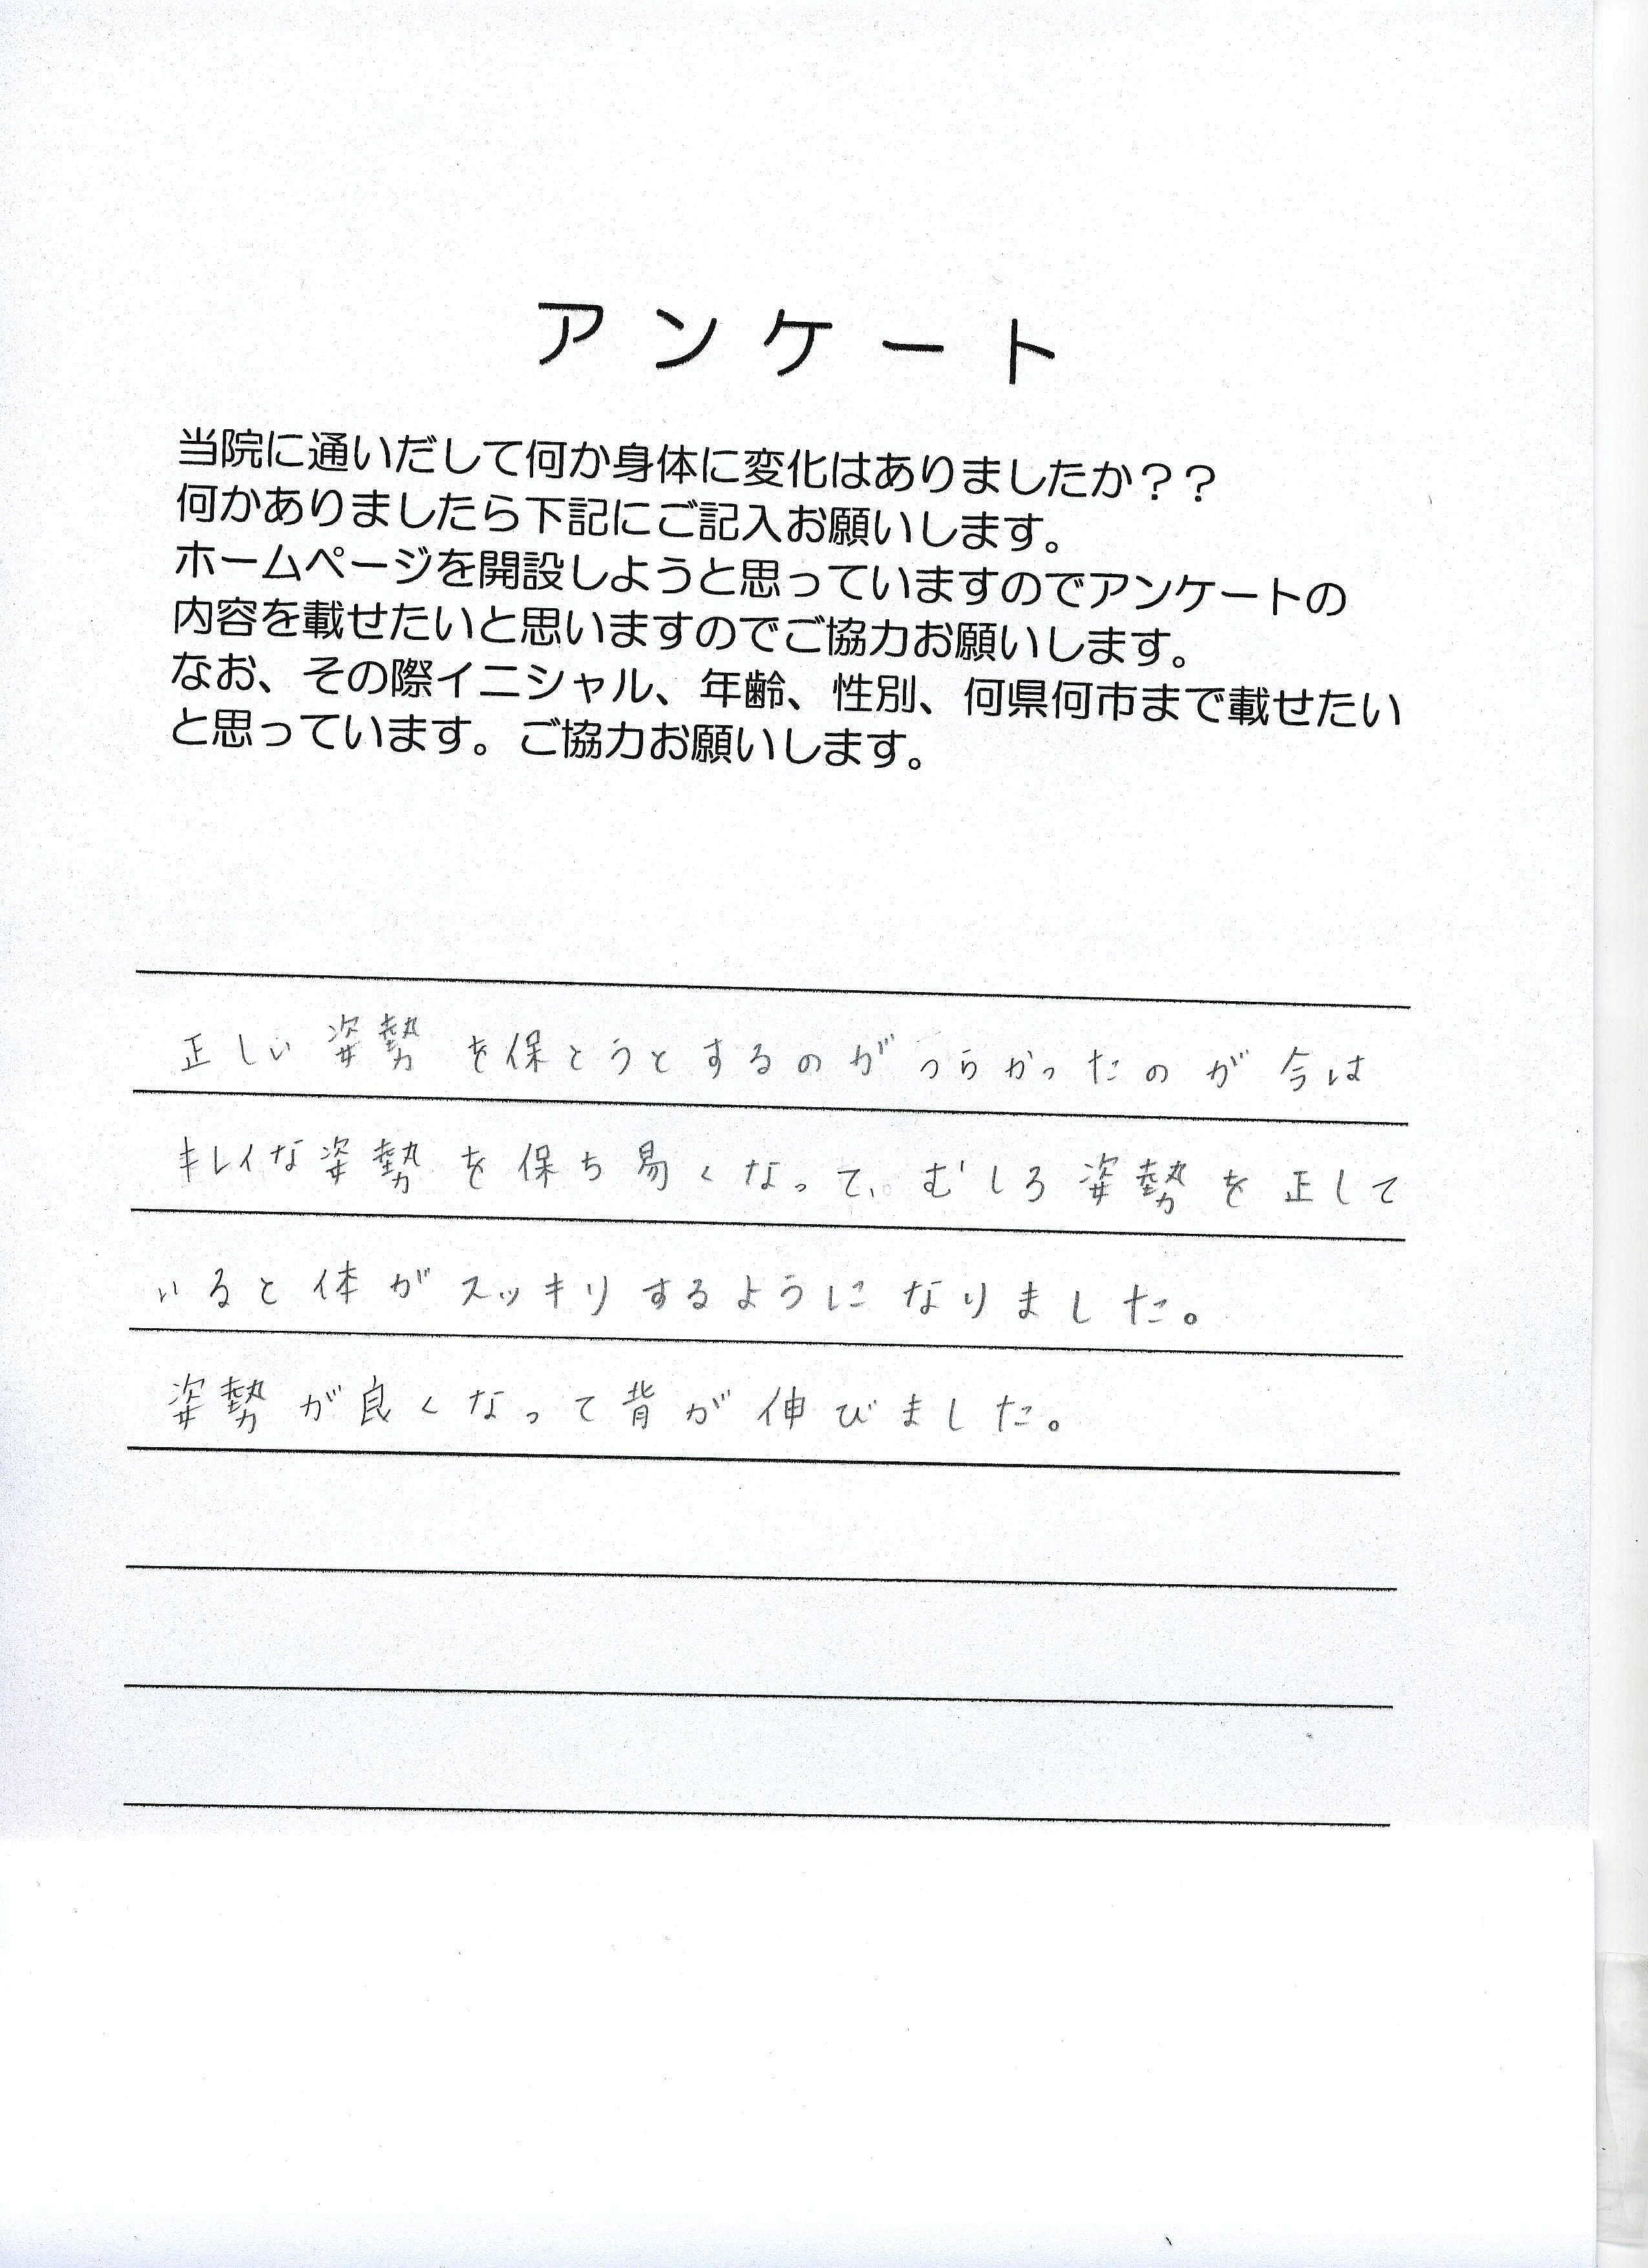 アンケート
当院に通いだして何か身体に変化はありましたか？？
何かありましたら下記にご記入お願いします。
ホームページを開設しようと思っていますのでアンケートの
内容を載せたいと思いますのでご協力お願いします。
なお、その際イニシャル、年齢、性別、何県何市まで載せたい
と思っています。ご協力お願いします。
正しい姿勢を保とうとするのがつらかったのが今は
キレイな姿勢を保ち易くなって、むしろ姿勢を正して
いると体がスッキリするようになりました。
姿勢が良くなって背が伸びました。